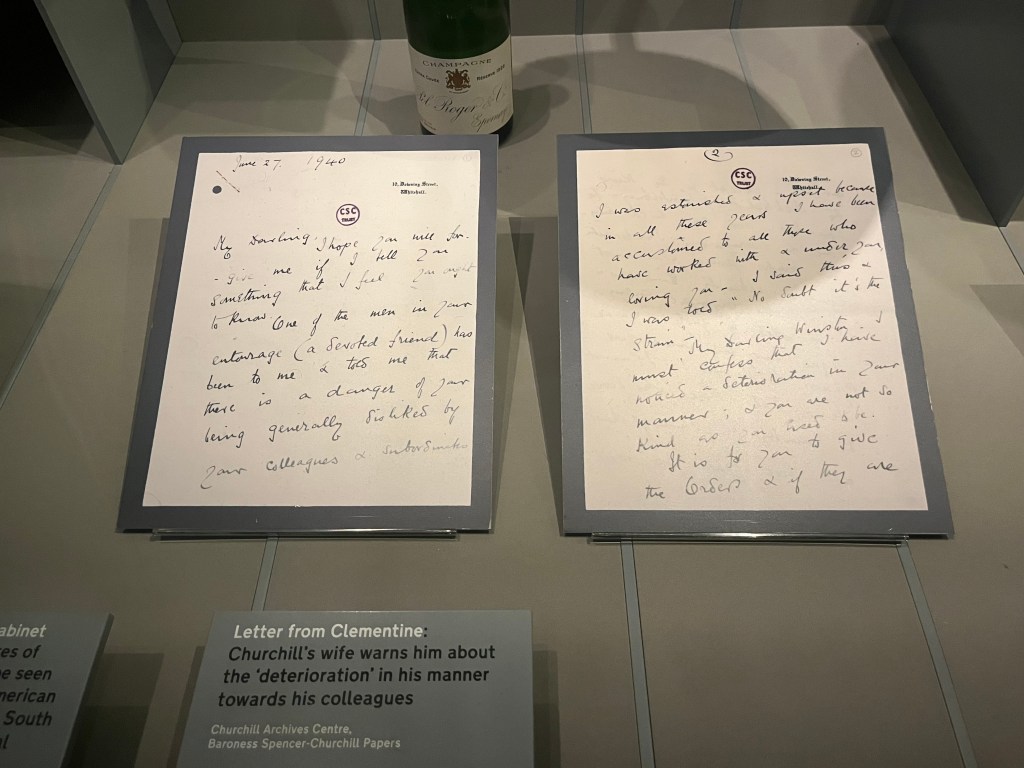 CHAMPAGNE
Pol Roger & Co
Epernay
June 27. 1940
10, Downing Street,
Whitehall.
CSC
TRUST
My Darling, I hope you will for-
-give me if I tell you
something that I feel you ought
to know. One of the men in your
entourage (a devoted friend) has
been to me & told me that
there is a danger of your
being generally disliked by
your colleagues & subordinates
(2)
10, Downing Street,
Whitehall.
CSC
TRUST
I was astonished & upset because
in all these years I have been
accustomed to all those who
have worked with & under you,
loving you - I said this &
I was told "No doubt it's the
strain" My Darling Winston. I
must confess that I have
noticed a deterioration in your
manner; & you are not so
kind as you used to be.
It is for you to give
the Orders & if they are
abinet
es of
e seen
merican
South
al
Letter from Clementine:
Churchill's wife warns him about
the 'deterioration' in his manner
towards his colleagues
Churchill Archives Centre,
Baroness Spencer-Churchill Papers